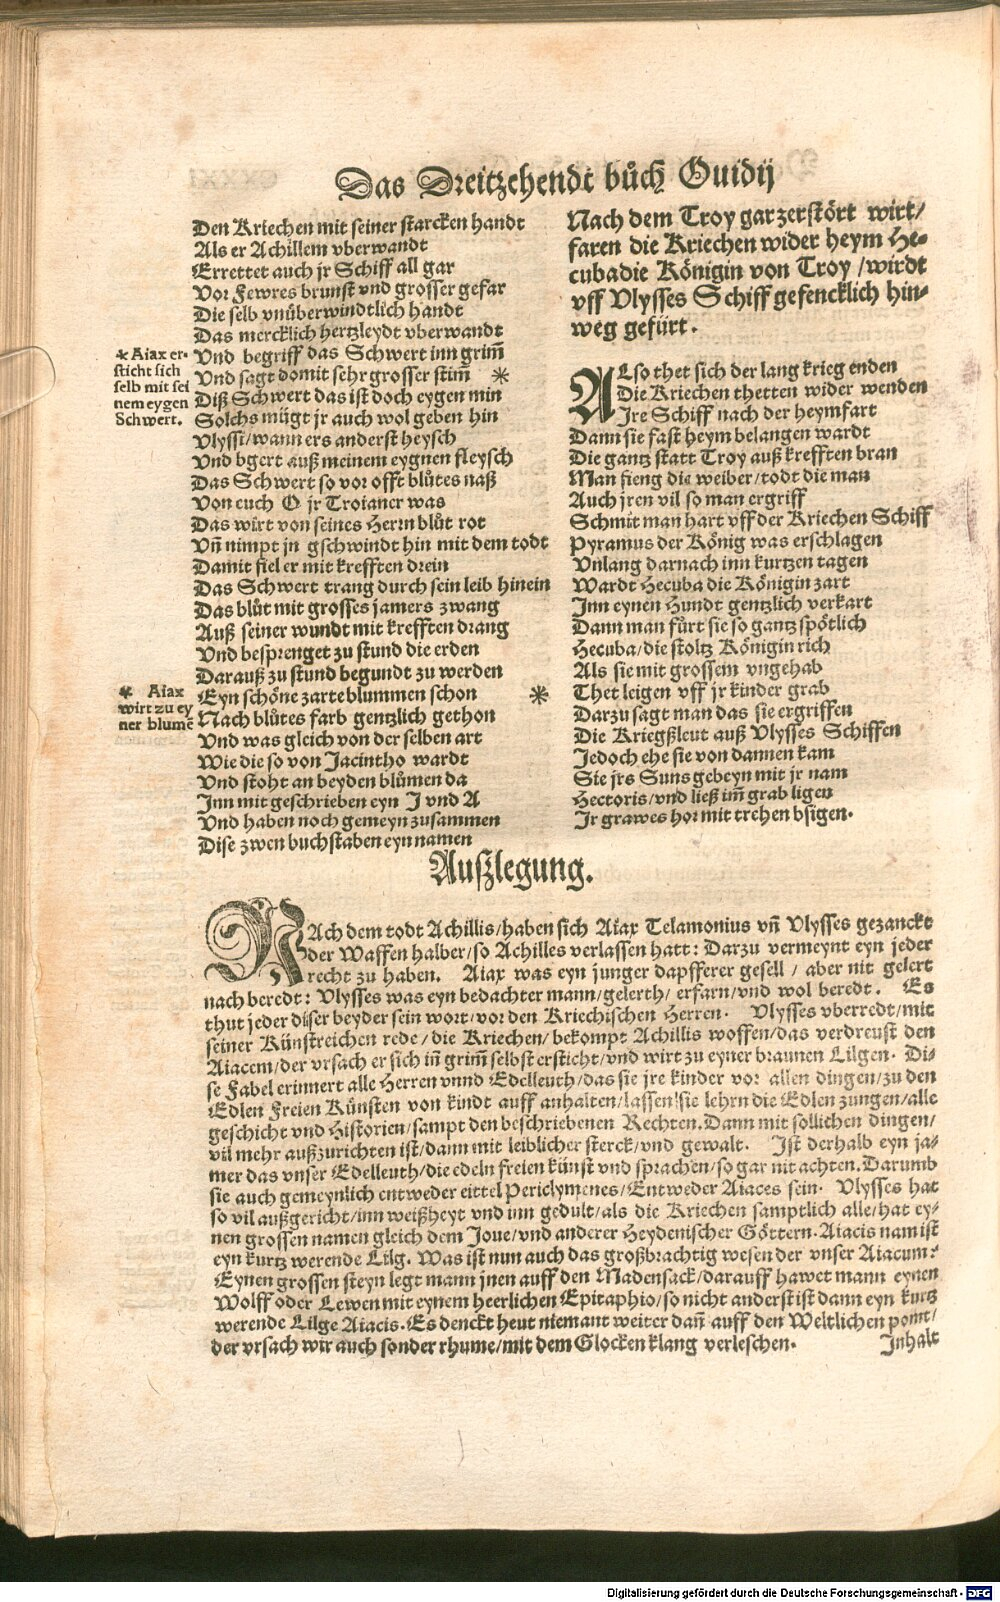 Das Dreitzehendt bůch Ouidij
Den Kriechen mit seiner starcken handt
Als er Achillem vberwandt
Errettet auch jr Schiff all gar
Vor Fewres brunst vnd grosser gefar
Die selb vnüberwindtlich handt
Das mercklich hertzleydt vberwandt
Vnd begriff das Schwert inn grim̃
Vnd sagt domit sehr grosser stim̃ *
Diß Schwert das ist doch eygen min
Solchs mügt jr auch wol geben hin
Vlyssi/wann ers anderst heysch
Vnd bgert auß meinem eygnen fleysch
Das Schwert so vor offt blůtes naß
Von euch O jr Troianer was
Das wirt von seines Herrn blůt rot
Vñ nimpt jn gschwindt hin mit dem todt
Damit fiel er mit krefften drein
Das Schwert trang durch sein leib hinein
Das blůt mit grosses jamers zwang
Auß seiner wundt mit krefften drang
Vnd besprenget zu stund die erden
Darauß zu stund begundt zu werden
Eyn schöne zarte blummen schon *
Nach blůtes farb gentzlich gethon
Vnd was gleich von der selben art
Wie die so von Jacintho wardt
Vnd stoht an beyden blůmen da
Inn mit geschrieben eyn J vnd A
Vnd haben noch gemeyn zusammen
Dise zwen buchstaben eyn namen
* Aiax er-
sticht sich
selb mit sei
nem eygen
Schwert.
* Aiax
wirt zu ey
ner blumẽ
Nach dem Troy gar zerstört wirt/
faren die Kriechen wider heym He-
cuba die Königin von Troy/wirdt
vff Vlysses Schiff gefencklich hin-
weg gefürt.
ALso thet sich der lang krieg enden
Die Kriechen thetten wider wenden
Ire Schiff nach der heymfart
Dann sie fast heym belangen wardt
Die gantz statt Troy auß krefften bran
Man fieng die weiber/todt die man
Auch jren vil so man ergriff
Schmit man hart vff der Kriechen Schiff
Pyramus der König was erschlagen
Vnlang darnach inn kurtzen tagen
Wardt Hecuba die Königin zart
Inn eynen Hundt gentzlich verkart
Dann man fürt sie so gantz spötlich
Hecuba/die stoltz Königin rich
Als sie mit grossem vngehab
Thet leigen vff jr kinder grab
Darzu sagt man das sie ergriffen
Die Kriegßleut auß Vlysses Schiffen
Jedoch ehe sie von dannen kam
Sie jrs Suns gebeyn mit jr nam
Hectoris/vnd ließ im̃ grab ligen
Ir grawes hor mit trehen bsigen.
Außlegung.
NAch dem todt Achillis/haben sich Aiax Telamonius vñ Vlysses gezanckt
der Waffen halber/so Achilles verlassen hatt: Darzu vermeynt eyn jeder
recht zu haben. Aiax was eyn junger dapfferer gesell/ aber nit gelert
nach beredt: Vlysses was eyn bedachter mann/gelerth/ erfarn/vnd wol beredt. Es
thut jeder diser beyder sein wort/vor den Kriechischen Herren. Vlysses vberredt/mit
seiner Künstreichen rede/die Kriechen/bekompt Achillis woffen/das verdreußt den
Aiacem/der vrsach er sich iñ grim̃ selbst ersticht/vnd wirt zu eyner braunen Lilgen. Di-
se Fabel erinnert alle Herren vnnd Edelleuth/das sie jre kinder vor allen dingen/zu den
Edlen Freien Künsten von kindt auff anhalten/lassen sie lehrn die Edlen zungen/alle
geschicht vnd Historien/sampt den beschriebenen Rechten. Dann mit sollichen dingen/
vil mehr außzurichten ist/dann mit leiblicher sterck/vnd gewalt. Ist derhalb eyn ja-
mer das vnser Edelleuth/die edeln freien künst vnd sprachen/so gar nit achten. Darumb
sie auch gemeynlich entweder eittel Periclymenes/Entweder Aiaces sein. Vlysses hat
so vil außgericht/inn weißheyt vnd inn gedult/als die Kriechen samptlich alle/hat ey-
nen grossen namen gleich dem Joue/vnd anderer Heydenischer Göttern. Aiacis nam ist
eyn kurtz werende Lilg. Was ist nun auch das großbrachtig wesen der vnser Aiacum?
Eynen grossen steyn legt mann jnen auff den Madensack/darauff hawet mann eynen
Wolff oder Lewen mit eynem heerlichen Epitaphio/so nicht anderst ist dann eyn kurtz
werende Lilge Aiacis. Es denckt heut niemant weiter dañ auff den Weltlichen pomt/
der vrsach wir auch sonder rhume/mit dem Glocken klang verleschen.
Inhalt
Digitalisierung gefördert durch die Deutsche Forschungsgemeinschaft - DFG